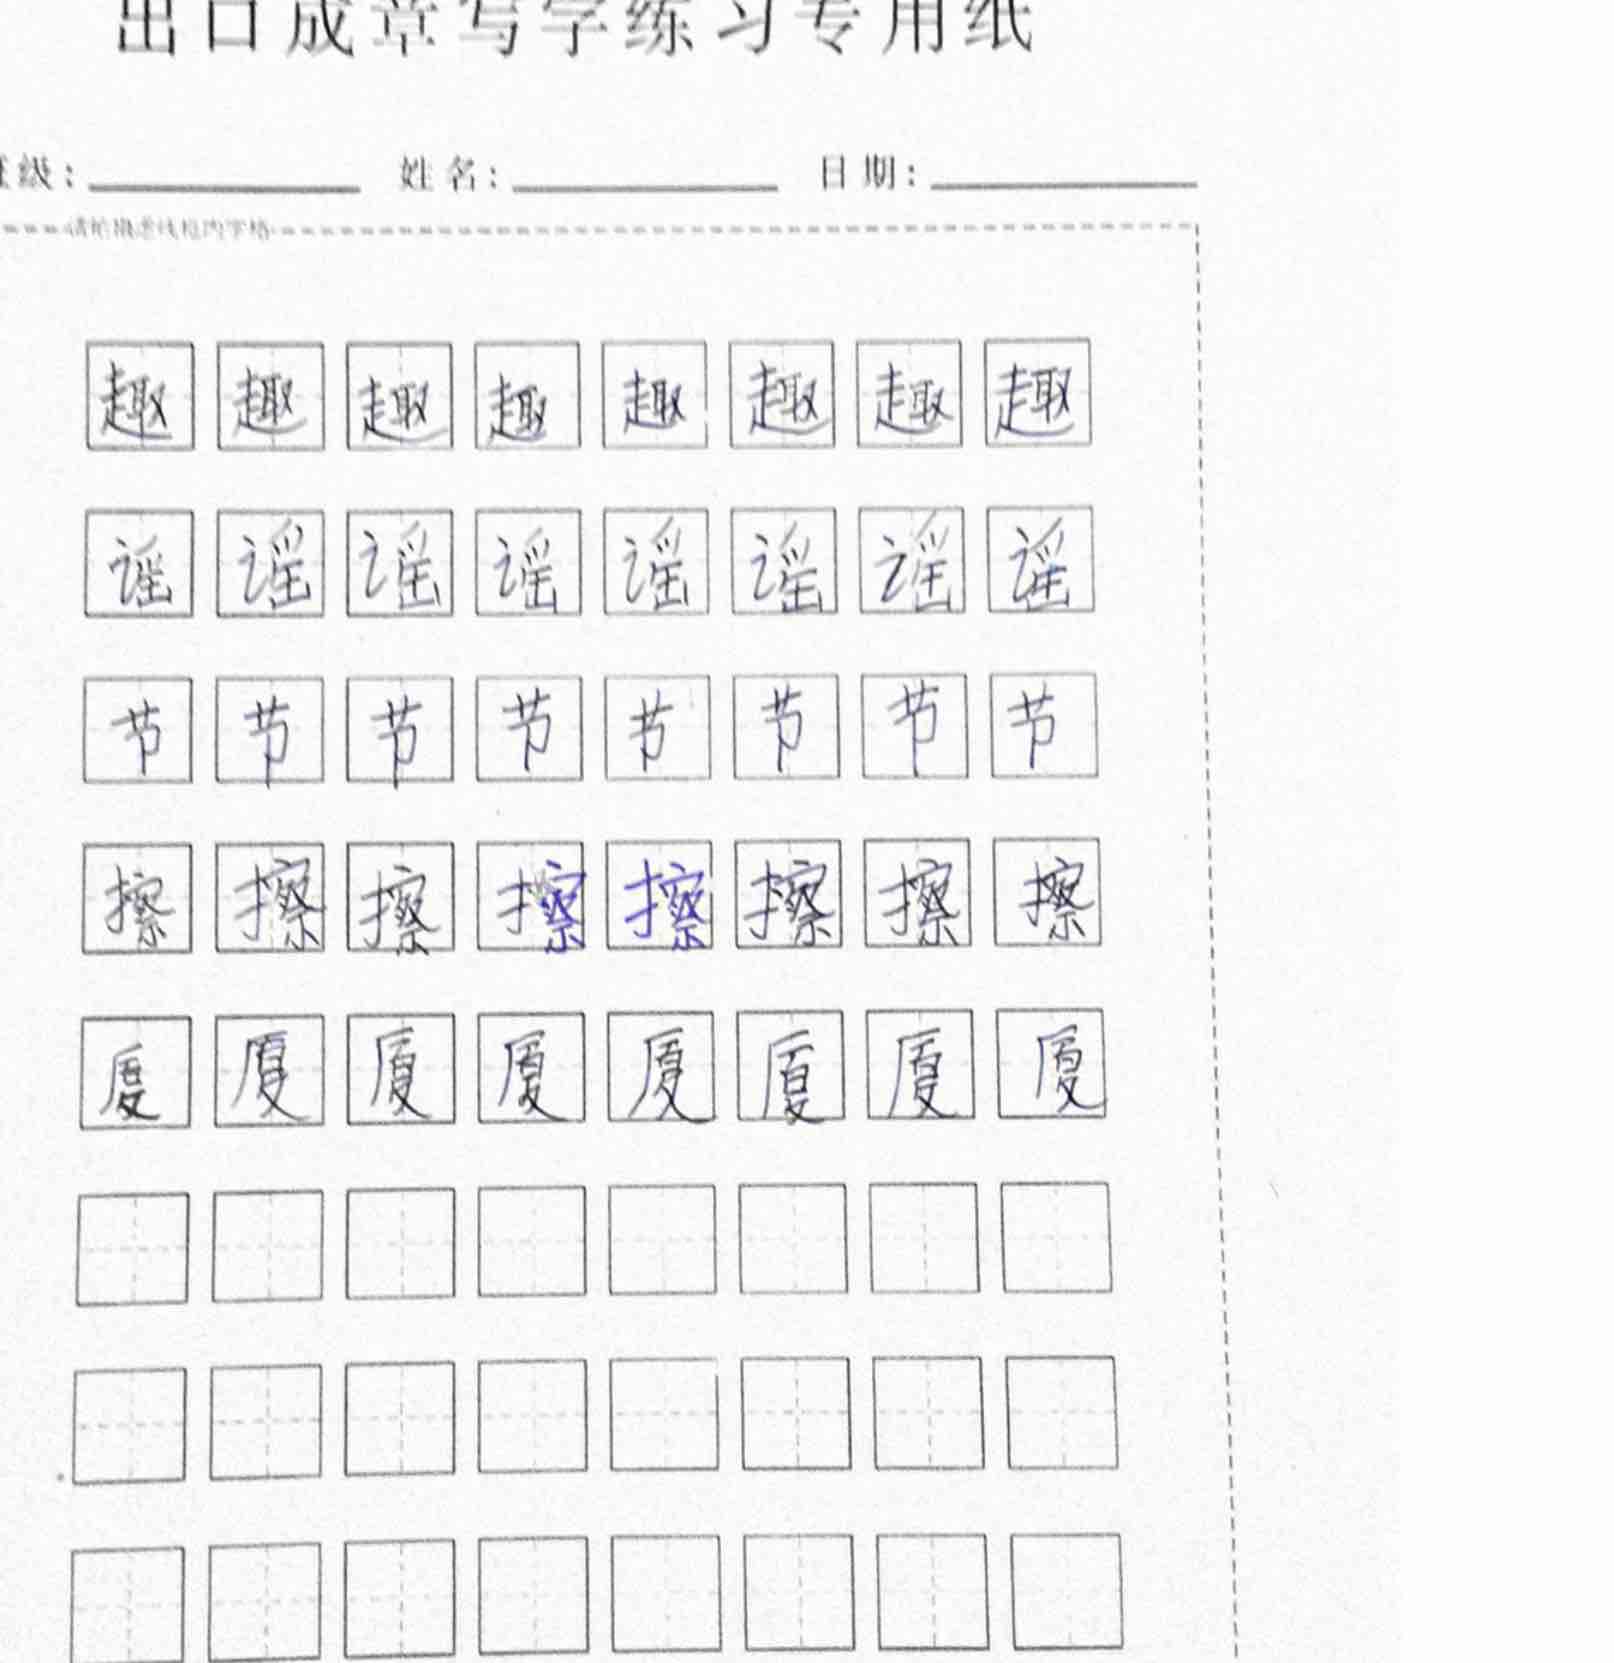 出口成章写字练习专用纸
班级： 姓名： 日期：
请拍摄虚线框内字格
趣趣趣趣趣趣趣趣
谣谣谣谣谣谣谣谣
节节节节节节节节
擦擦擦擦擦擦擦擦
厦厦厦厦厦厦厦厦